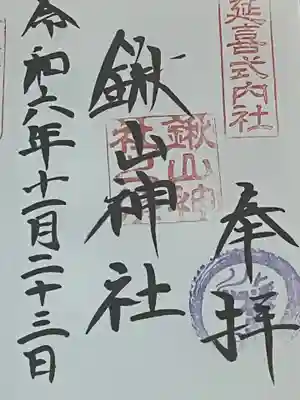 延喜式内社
奉拝
鍬山神社
鍬山神
社
令和六年十一月二十三日